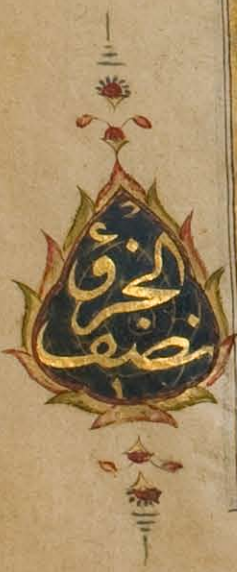 نصف
الجزؤ